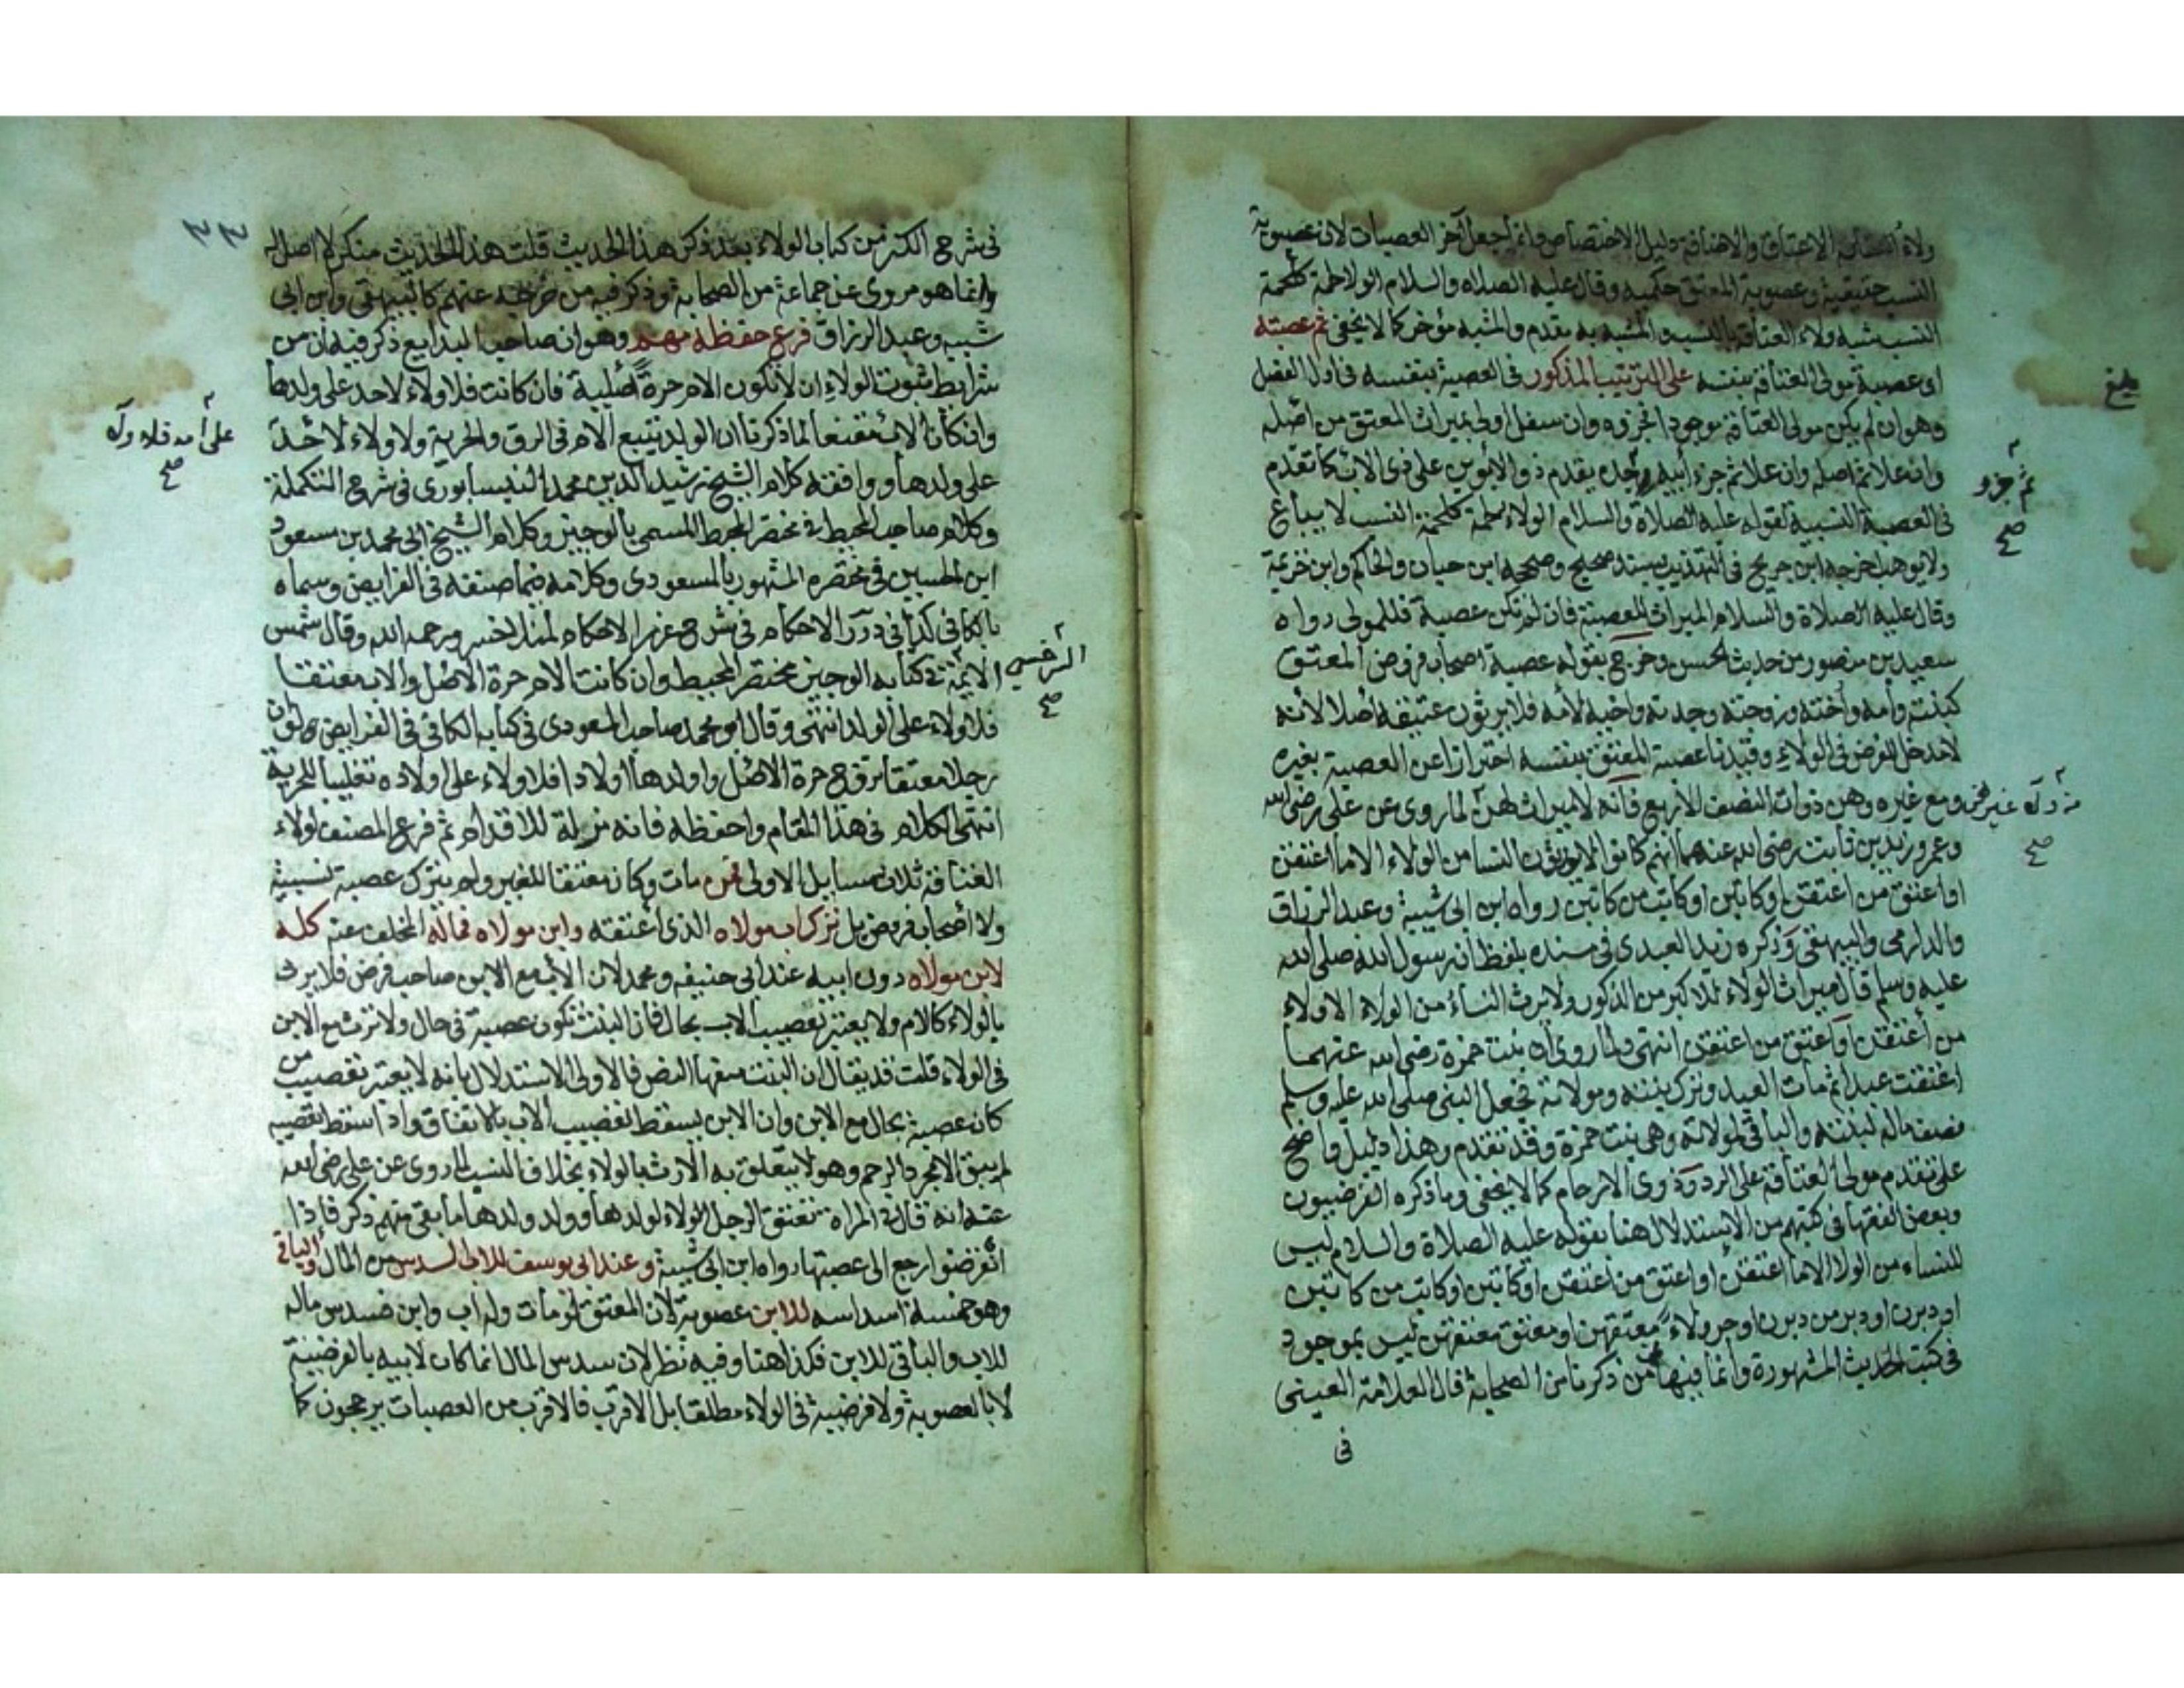 ولاء العتاقة الاعتاق والاضافة دليل الاختصاص وانما جعل آخر العصبات لان عصوبة
النسب حقيقية وعصوبة المعتق حكمية وقال عليه الصلاه والسلام الولا لحمة كلحمة
النسب شبه ولاء العتاقة بالنسب والمشبه به يقدم والمشبه مؤخر كما لا يخفى ثم عصبته
اى عصبة مولى العتاقة بنفسه على الترتيب المذكور فى العصبة بنفسه فى اول الفصل
بلغ
وهو ان لم يكن مولى العتاقة موجودا فجزؤه وان سفل اولى بميراث المعتق من اصله
وان علا ثم اصله وان علا ثم جزء أبيه ثم جزء جده يقدم ذو الابوين على ذى الاب كما تقدم
فى العصبة النسبية لقوله عليه الصلاة والسلام الولاء لحمة كلحمة النسب لا يباع
ولا يوهب اخرجه ابن جرير فى التهذيب بسند صحيح وصححه ابن حبان والحاكم وابن خزيمة
وقال عليه الصلاة والسلام الميراث للعصبة فان لم تكن عصبة فللمولى رواه
سعيد بن منصور من حديث الحسن وخرج بقوله عصبة اصحاب فروض المعتق
كبنته وأمه وأخته وزوجته وجدته واخيه لأمه فلا يرثون عتيقه أصلا لأنه
لا مدخل للفرض فى الولاء وقيدنا عصبة المعتق بنفسه احترازا عن العصبة بغيره
ومع غيره وهن ذوات النصف الاربع فانه لا ميراث لهن لما روى عن على رضى الله
وعمر وزيد بن ثابت رضى الله عنهم انهم كانوا لا يورثون النسا من الولاء الا ما اعتقن
او اعتق من اعتقن او كاتبن او كاتب من كاتبن رواه ابن ابى شيبة وعبد الرزاق
والدارمى والبيهقى وذكره زيد العبدى فى مسنده بلفظ ان رسول الله صلى الله
عليه وسلم قال ميراث الولاء للاكبر من الذكور ولا يرث النسأ من الولاء الا ولاء
من أعتقن او اعتق من اعتقن انتهى ولما روى ان بنت حمزة رضى الله عنهما
اعتقت عبدا ثم مات العبد وترك بنته ومولاته فجعل النبى صلى الله عليه وسلم
نصف ماله لبنته والباقى لمولاته وهى بنت حمزة وقد تقدم وهذا دليل واضح
على تقدم مولى العتاقة على الرد وذوى الارحام كما لا يخفى وما ذكره الفرضيون
وبعض الفقها فى كتبهم من الاستدلال هنا بقوله عليه الصلاة والسلام ليس
للنساء من الولا الا ما اعتقن او اعتق من اعتقن او كاتبن او كاتب من كاتبن
او دبرن او دبر من دبرن او جر ولاء معتقهن او معتق معتقهن ليس بموجود
فى كتب الحديث المشهورة وانما فيها عن من ذكرنا من الصحابة قال العلامة العينى
فى
٣٣
فى شرح الكنز فى كتاب الولاء بعد ذكر هذا الحديث قلت هذا الحديث منكر لا اصل له
وانما هو مروى عن جماعة من الصحابة وذكر فيه من خرجه عنهم كالبيهقى وابن ابى
شيبه وعبد الرزاق فرع حفظه مهم وهو ان صاحب البدايع ذكر فيه ان من
شرايط ثبوت الولاء ان لا تكون الام حرة اصلية فان كانت فلا ولاء لاحد على ولدها
وان كان الاب معتقا لما ذكرنا ان الولد يتبع الام فى الرق والحرية ولا ولاء لاحد
على أمه فلا ولاء
صح
على ولدها ووافقه كلام الشيخ رشيد الدين محمد النيسابورى فى شرح التكملة
وكلام صاحب المحيط فى مختصر المحيط المسمى بالوجيز وكلام الشيخ ابى محمد بن مسعود
ابن الحسين فى مختصره المشهور بالمسعودى وكلامه فيما صنفه فى الفرايض وسماه
بالكافى كذا فى درر الاحكام فى شرح غرر الاحكام لمنلا خسرو رحمه الله وقال شمس
الائمة السرخسي صح فى كتابه الوجيز مختصر المحيط وان كانت الام حرة الاصل والاب معتقا
فلا ولاء على الولد انتهى وقال ابو محمد صاحب المسعودى فى كتابه الكافى فى الفرايض ولو ان
رجلا معتقا تزوج حرة الاصل واولدها اولادا فلا ولاء على اولاده تغليبا للحرية
انتهى الكلام فى هذا المقام واحفظه فانه مزلة للاقدام ثم فرع المصنف لولاء
العتاقة ثلاث مسايل الاولى فمن مات وكان معتقا للغير ولم يترك عصبة نسبية
ولا اصحاب فروض بل ترك اب مولاه الذى أعتقه وابن مولاه فماله المخلف عنه كله
لابن مولاه دون ابيه عند ابى حنيفه ومحمد لان الأب مع الابن صاحب فرض فلا يرث
بالولاء كالام ولا يعتبر تعصيب الاب بحال فان البنت تكون عصبة فى حال ولا ترث مع الابن
فى الولاء قلت قد يقال ان البنت منعها النص فالاولى الاستدلال بانه لا يعتبر تعصيب من
كان عصبة بحال مع الابن وان الابن يسقط تعصيب الاب بالاتفاق واذا سقط تعصيبه
لم يبق الا مجرد الرحم وهو لا يتعلق به الارث بالولاء بخلاف النسب لما روى عن على رضى الله
عنه انه قال فى المراة تعتق الرجل الولاء لولدها وولد ولدها ما بقى منهم ذكر فاذا
انقرضوا رجع الى عصبتها رواه ابن ابى شيبة وعند ابى يوسف للاب السدس من المال والباقى
وهو خمسة اسداسه للابن عصوبة لان المعتق لو مات وله اب وابن فسدس ماله
للاب والباقى للابن فكذا هنا وفيه نظر لان سدس المال انما كان لابيه بالفرضية
لا بالعصوبة ولا فرضية فى الولاء مطلقا بل الاقرب فالاقرب من العصبات يرجحون كما